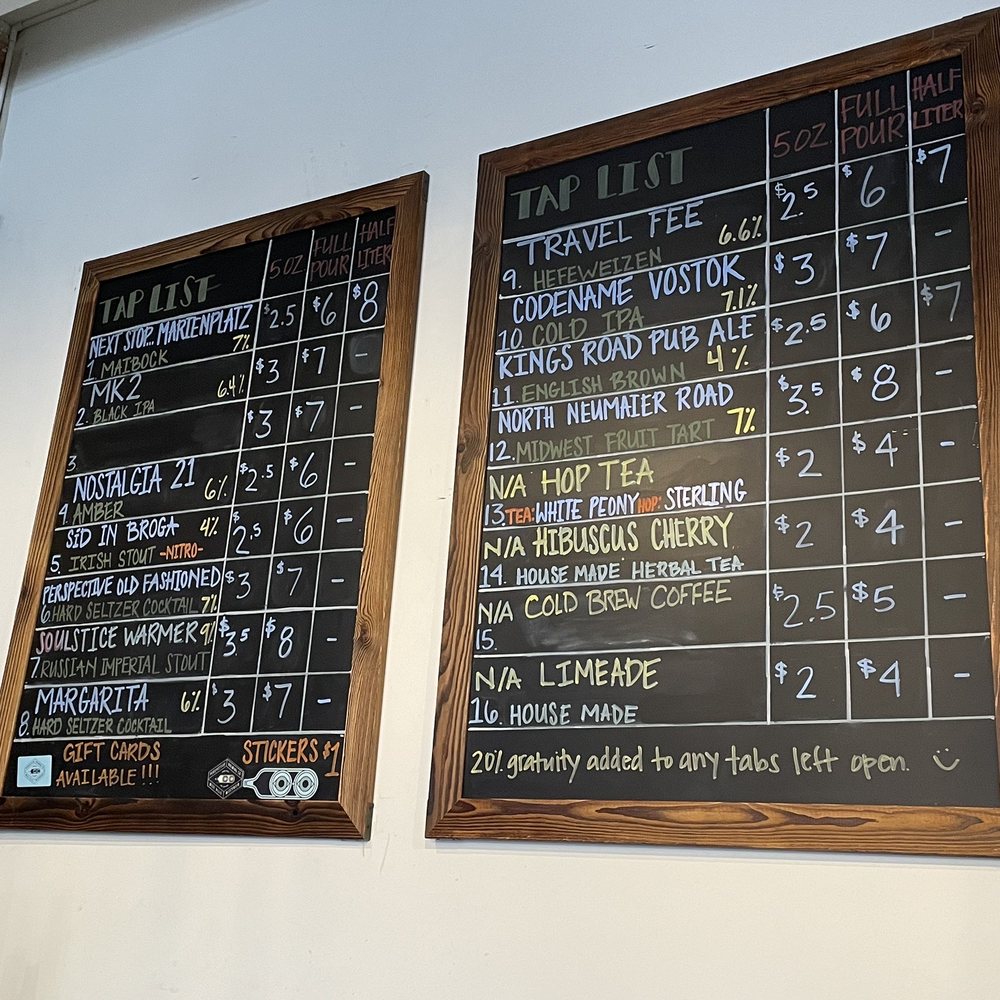 TAP LIST 5 OZ FULL POUR HALF LITER
NEXT STOP... MARIENPLATZ 7% $2.5 $6 $8
1. MAIBOCK
MK2 6.4% $3 $7 -
2. BLACK IPA
3 $3 $7 -
NOSTALGIA 21 6% $2.5 $6 -
4. AMBER
SID IN BROGA 4% $2.5 $6 -
5. IRISH STOUT -NITRO-
PERSPECTIVE OLD FASHIONED $3 $7 -
6. HARD SELTZER COCKTAIL 7%
SOULSTICE WARMER 9% $3.5 $8 -
7. RUSSIAN IMPERIAL STOUT
MARGARITA 6% $3 $7 -
8. HARD SELTZER COCKTAIL
GIFT CARDS
AVAILABLE!!!
STICKERS $1
TAP LIST 5 OZ FULL POUR HALF LITER
TRAVEL FEE 6.6% $2.5 $6 $7
9. HEFEWEIZEN
CODENAME VOSTOK 7.1% $3 $7 -
10. COLD IPA
KINGS ROAD PUB ALE $2.5 $6 $7
11. ENGLISH BROWN 4%
NORTH NEUMAIER ROAD $3.5 $8 -
12. MIDWEST FRUIT TART 7%
N/A HOP TEA $2 $4 -
13. TEA: WHITE PEONY HOP: STERLING
N/A HIBUSCUS CHERRY $2 $4 -
14. HOUSE MADE HERBAL TEA
N/A COLD BREW COFFEE $2.5 $5 -
15.
N/A LIMEADE $2 $4 -
16. HOUSE MADE
20% gratuity added to any tabs left open.